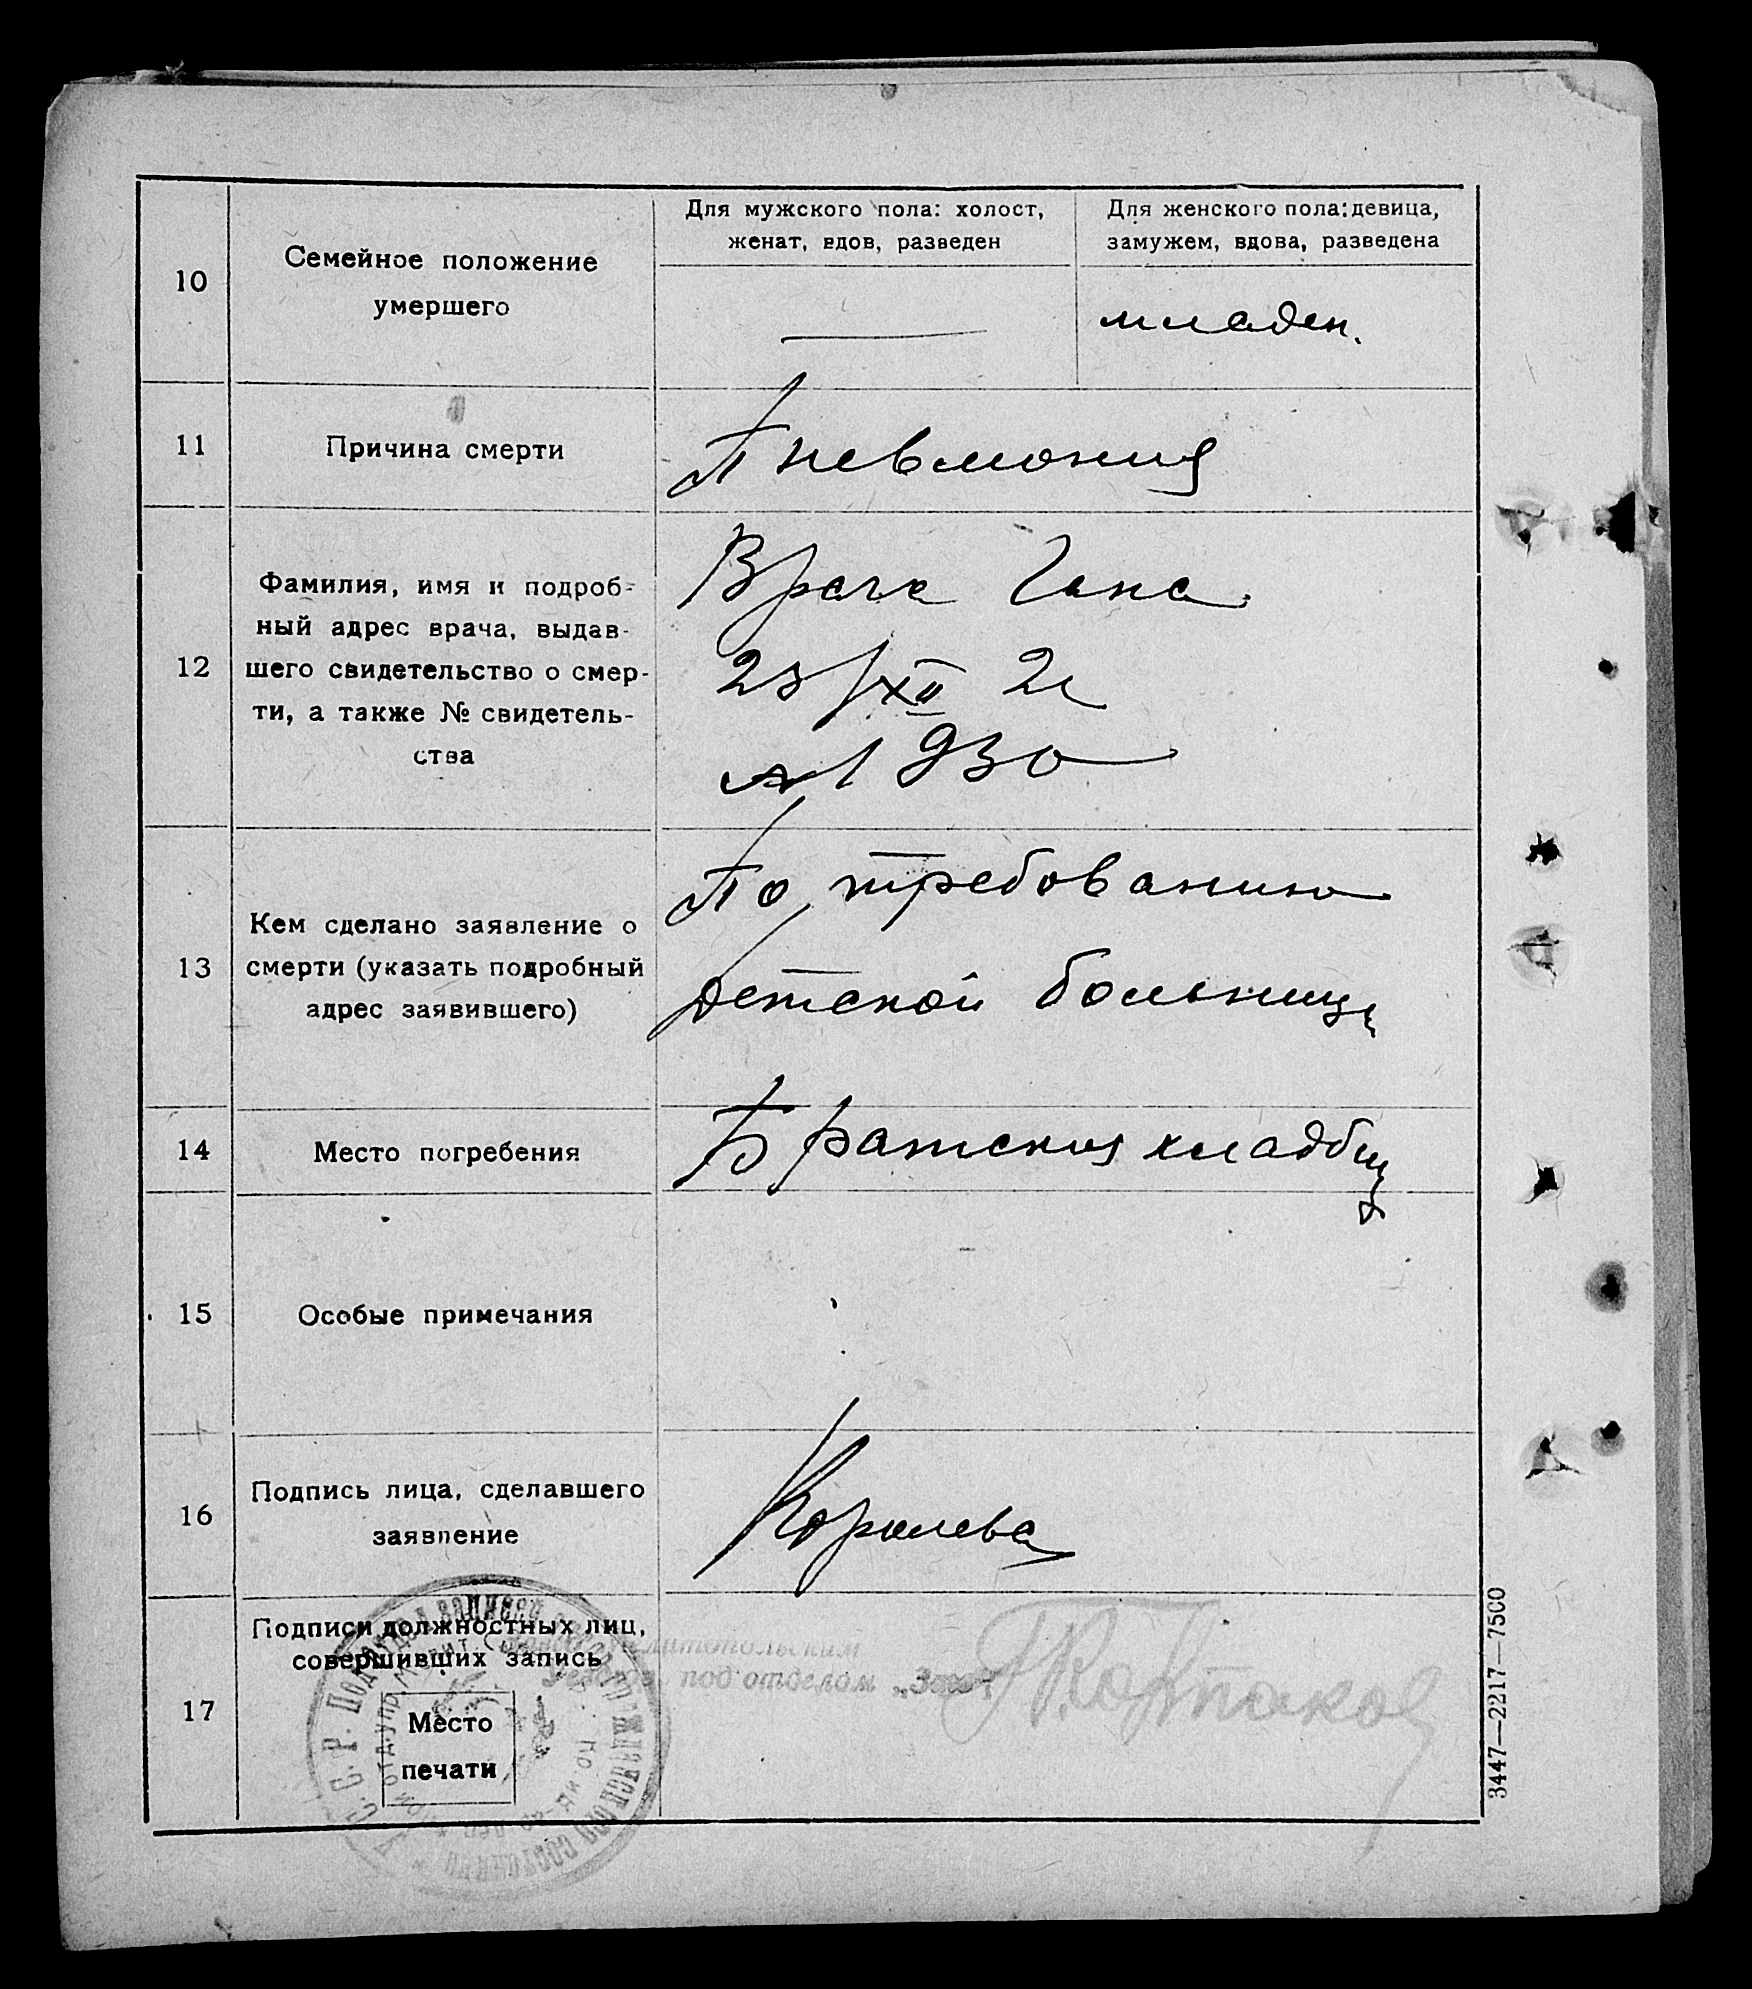 10
Семейное положение
умершего
Для мужского пола: холост,
женат, вдов, разведен
Для женского пола: девица,
замужем, вдова, разведена
младен.
11
Причина смерти
Пневмония
12
Фамилия, имя и подроб-
ный адрес врача, выдав-
шего свидетельство о смер-
ти, а также № свидетель-
ства
Врача
/XII
№ 930
13
Кем сделано заявление о
смерти (указать подробный
адрес заявившего)
По требованию
детской больницы
14
Место погребения
Братския кладбищ
15
Особые примечания
16
Подпись лица, сделавшего
заявление
Королева
17
Подписи должностных лиц,
совершивших запись
Место
печати
под отделом „Загс“
3447—2217—7500